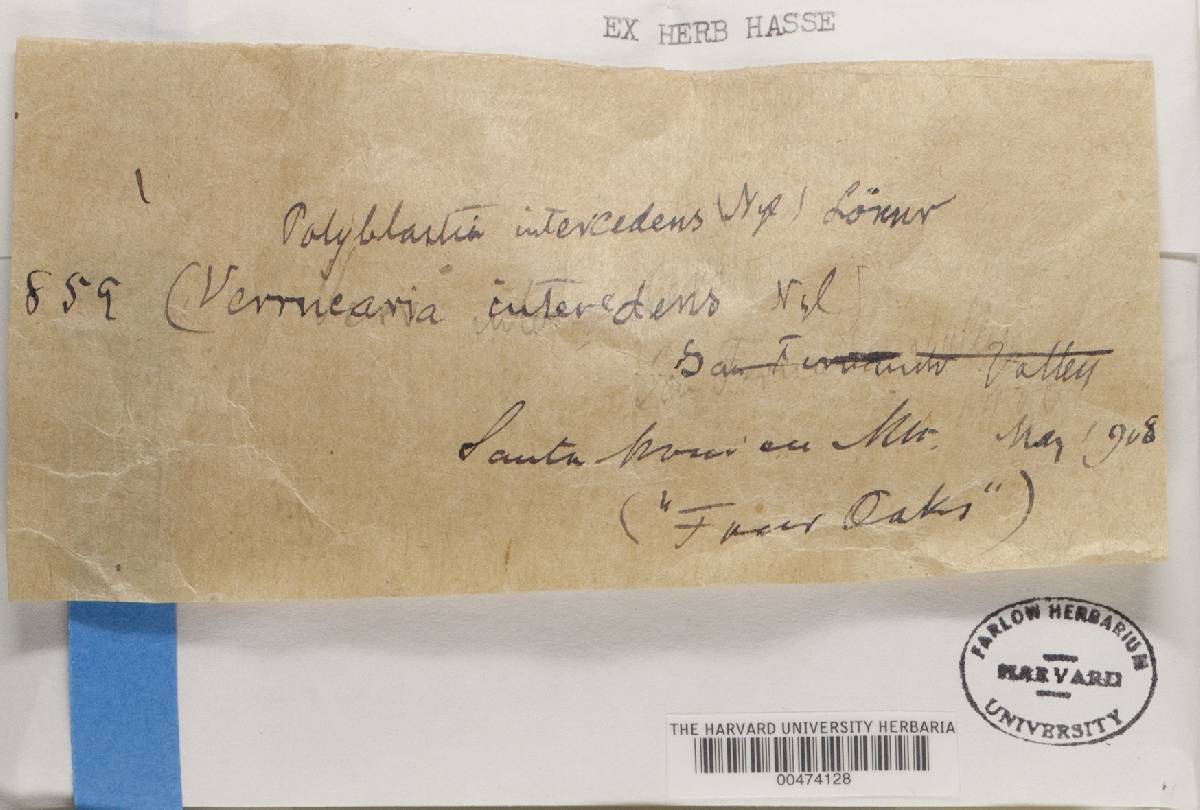 EX HERB HASSE
\
Polyblastia intercedens (Nyl) Lönnr
859 (Verrucaria intercedens Nyl)
San Fernando Valley
Santa Monica Mts. May 1908
("Four Oaks")
FARLOW HERBARIUM
HARVARD
UNIVERSITY
THE HARVARD UNIVERSITY HERBARIA
00474128